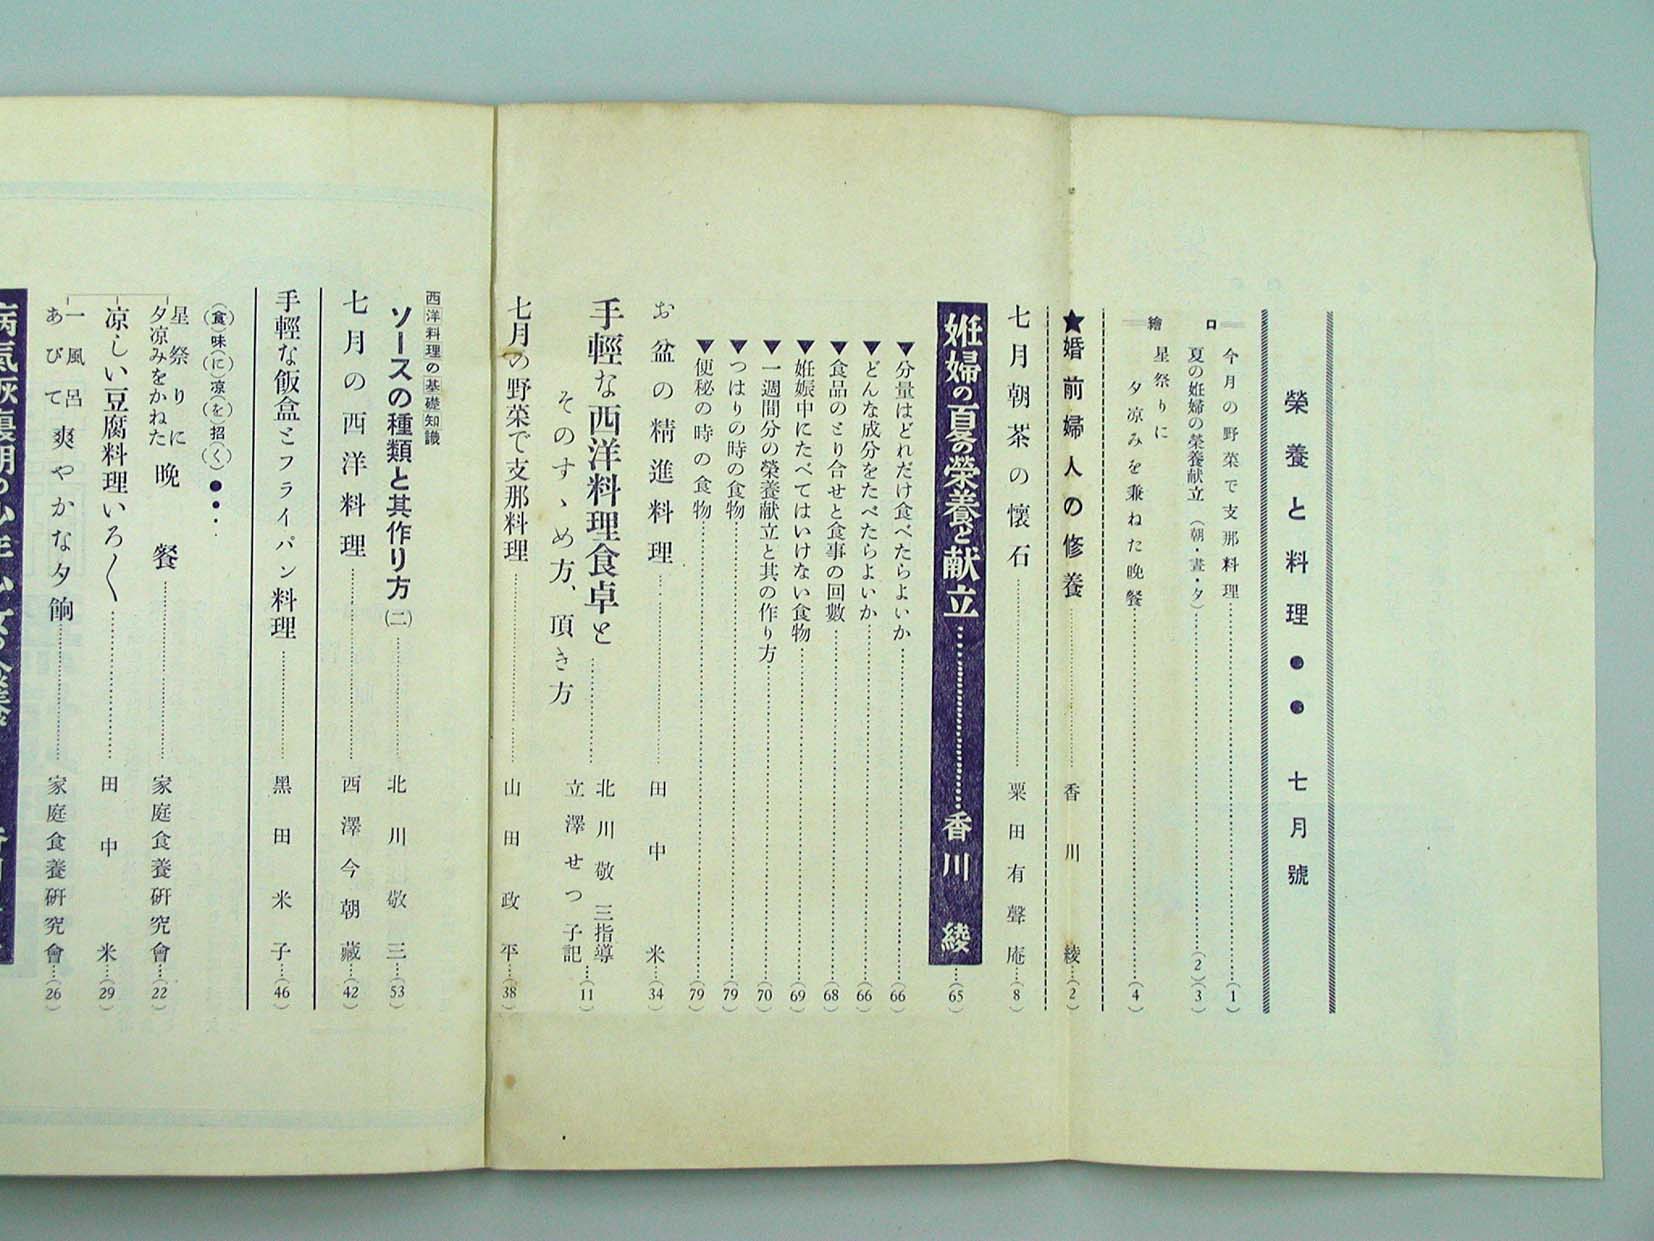 榮養と料理●●七月號
口繪
今月の野菜で支那料理…(1)
夏の姙婦の榮養献立(朝・晝・夕)…(2)(3)
星祭りに
夕凉みを兼ねた晩餐…(4)
★婚前婦人の修養…香川綾…(2)
七月朝茶の懐石…粟田有聲庵…(8)
姙婦の夏の榮養と献立…香川綾…(65)
▼分量はどれだけ食べたらよいか…(66)
▼どんな成分をたべたらよいか…(66)
▼食品のとり合せと食事の回數…(68)
▼姙娠中にたべてはいけない食物…(69)
▼一週間分の榮養献立と其の作り方…(70)
▼つはりの時の食物…(79)
▼便秘の時の食物…(79)
お盆の精進料理…田中米…(34)
手輕な西洋料理食卓と…北川敬三指導
そのすゝめ方、頂き方 立澤せつ子記…(11)
七月の野菜で支那料理…山田政平…(38)
西洋料理の基礎知識
ソースの種類と其作り方(二)…北川敬三…(53)
七月の西洋料理…西澤今朝藏…(42)
手輕な飯盒とフライパン料理…黑田米子…(46)
(食)味(に)凉(を)招(く)●●・
星祭りに
夕凉みをかねた晩餐…家庭食養硏究會…(22)
凉しい豆腐料理いろ〱…田中米…(29)
一風呂
あびて爽やかな夕餉…家庭食養硏究會…(26)